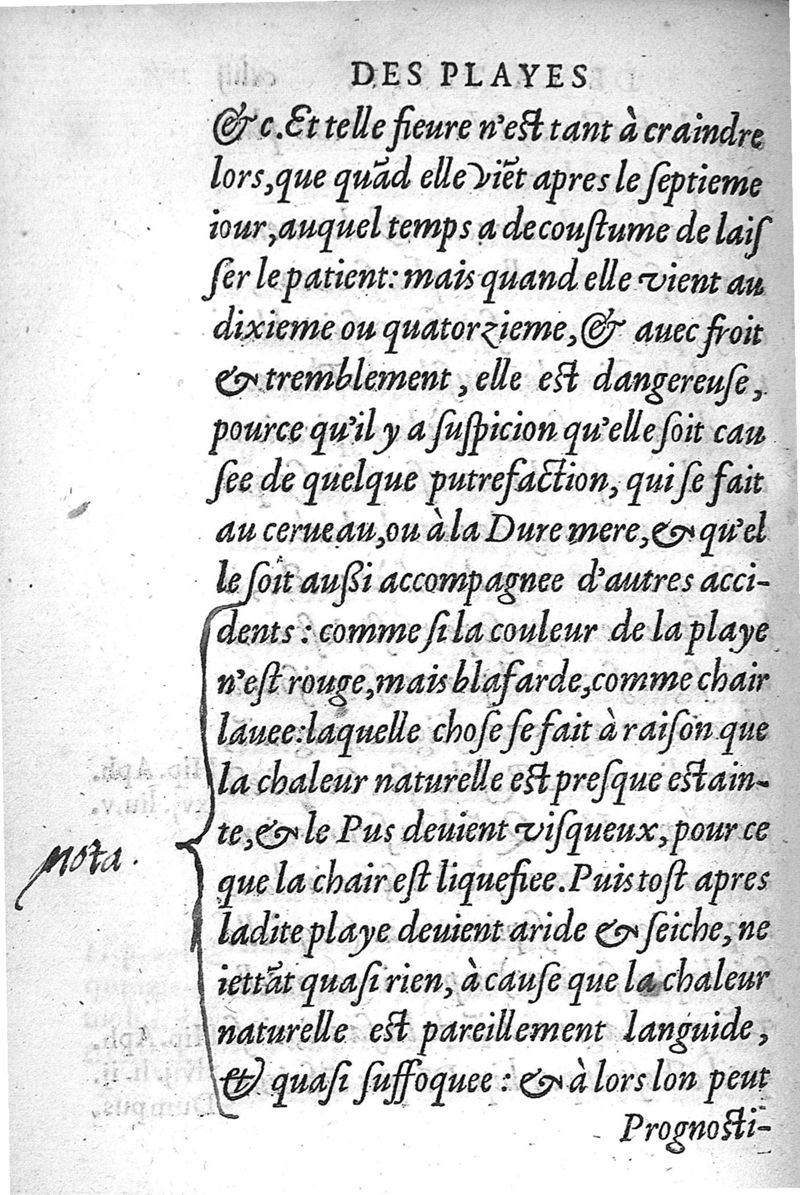 DES PLAYES
&c. Et telle fieure n'est tant à craindre
lors, que quād elle viēt apres le septieme
iour, auquel temps a de coustume de laiſ
ſer le patient: mais quand elle vient au
dixieme ou quatorzieme, & auec froit
& tremblement, elle est dangereuſe,
pource qu'il y a ſuſpicion qu'elle ſoit cau
ſee de quelque putrefaction, qui ſe fait
au cerueau, ou à la Dure mere, & qu'el
le ſoit außi accompagnee d'autres acci-
dents: comme ſi la couleur de la playe
n'eſt rouge, mais blafarde, comme chair
lauee: laquelle choſe ſe fait à raiſon que
la chaleur naturelle est preſque estain-
te, & le Pus deuient viſqueux, pour ce
que la chair eſt liquefiee. Puis toſt apres
ladite playe deuient aride & ſeiche, ne
iettāt quaſi rien, à cauſe que la chaleur
naturelle est pareillement languide,
& quaſi ſuffoquee: & à lors lon peut
Prognosti-
Nota.